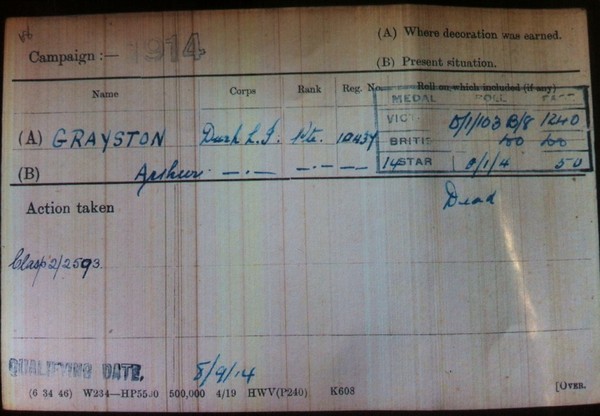 Campaign :— 1914
(A) Where decoration was earned.
(B) Present situation.
Name Corps Rank Reg. No. Roll on which included (if any)
MEDAL ROLL PAGE
(A) GRAYSTON Durh L.I. Pte. 10437
VICT D/1/103 B/8 1240
BRITI do do
(B) Arthur —.— —.—
14 STAR D/1/4 50
Action taken
Dead
Clasp 2/2593.
QUALIFYING DATE. 8/9/14
(6 34 46) W234—HP5590 500,000 4/19 HWV(P240) K608
[OVER.